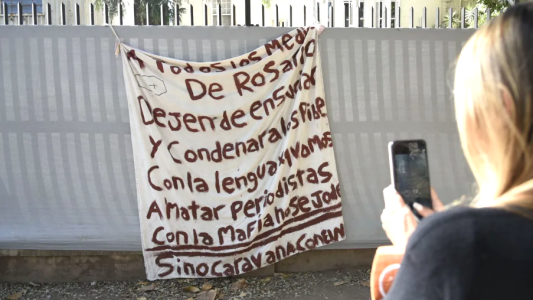 A Todos los Medi
De Rosario
Dejen de ensuciar
y Condenar a los Pibe
Con la lengua
A matar Periodistas
Con la Mafia no Se Jode
Sino caravana Con